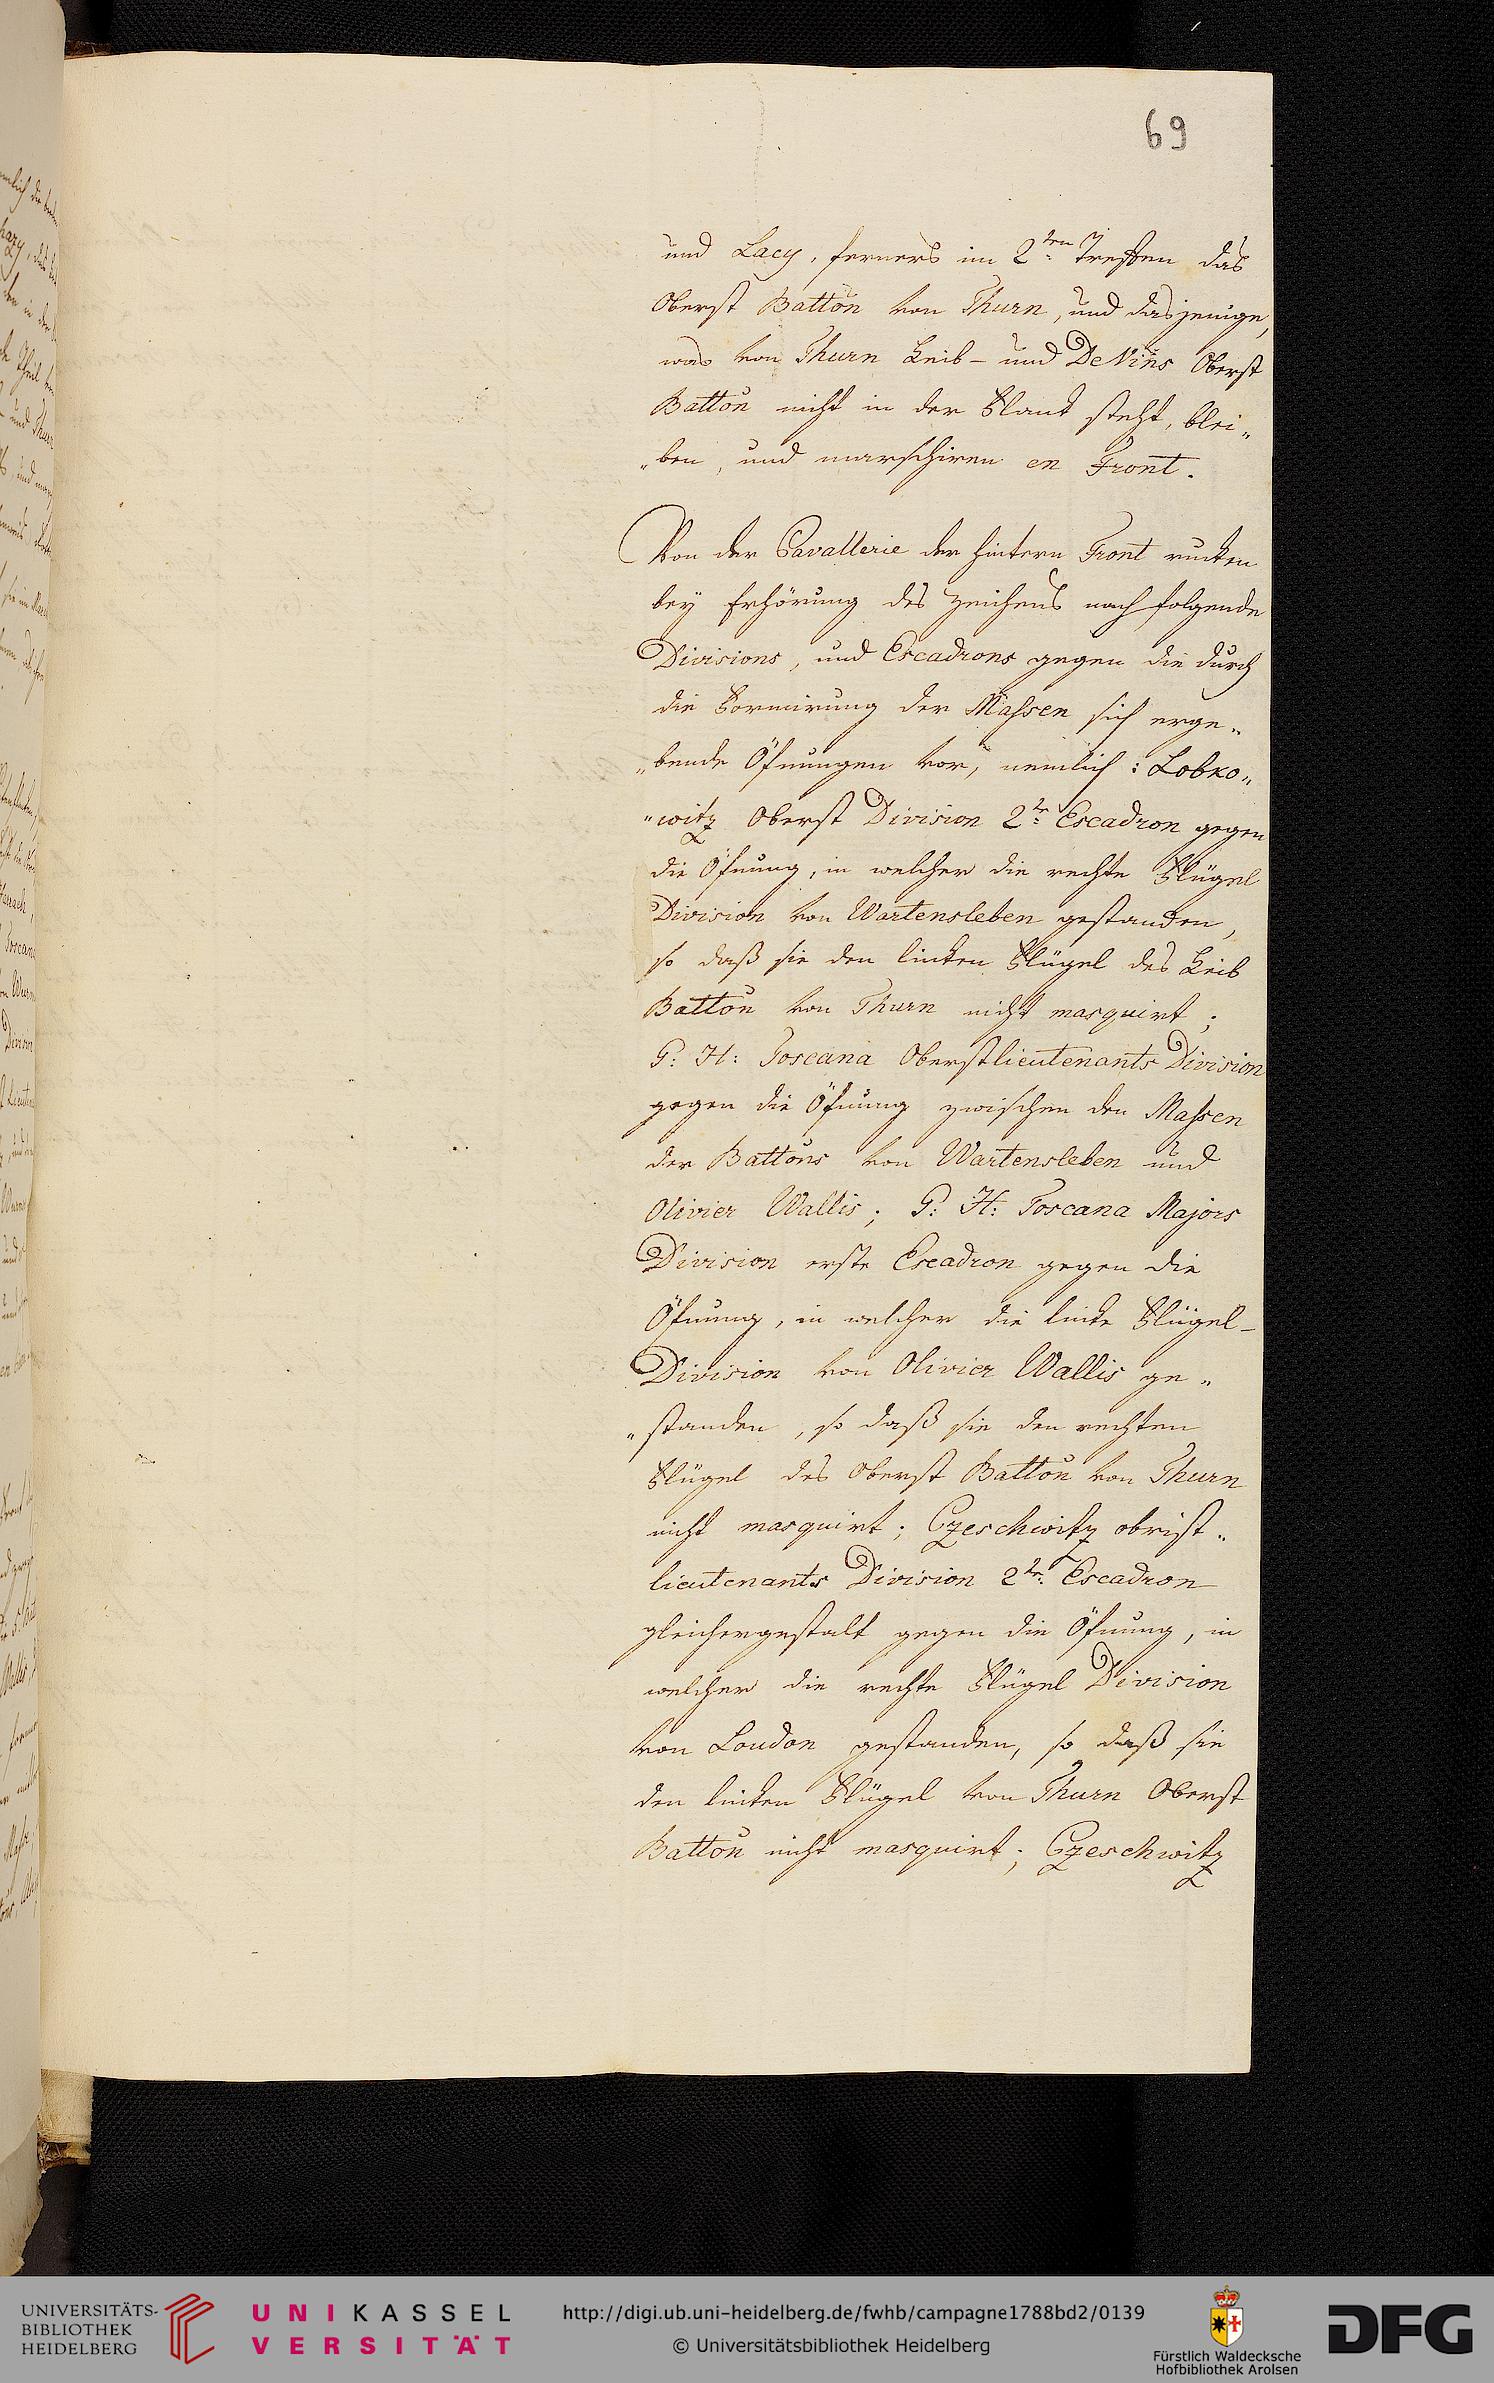 69
und Lacy, ferners im 2ten Treffen das
Oberst Battōn von Thurn, und dasjenige,
was von Thurn Leib- und DeVins Oberst
Battōn nicht in der Flank steht, blei„
„ben, und marschiren en Front.
Von der Cavallerie der hintern Front rucken
bey Erhörung des Zeichens nach folgende
Divisions, und Escadrons gegen die durch
die Formirung der Maßen sich erge„
„bende Öfnungen vor, nemlich: Lobko„
„witz Oberst Division 2te Escadron gegen
die Öfnung, in welcher die rechte Flügel
Division von Wartensleben gestanden,
so daß sie den linken Flügel des Leib
Battōn von Thurn nicht masquirt;
G: H: Toscana Oberstlieutenants Division
gegen die Öfnung zwischen den Maßen
der Battōns von Wartensleben und
Olivier Wallis; G: H: Toscana Majors
Division erste Escadron gegen die
Öfnung, in welcher die linke Flügel-
Division von Olivier Wallis ge„
„standen, so daß sie den rechten
Flügel des Oberst Battōn von Thurn
nicht masquirt; Czeschwitz obrist„
lieutenants Division 2te Escadron
gleichergestalt gegen die Öfnung, in
welcher die rechte Flügel Division
von Loudon gestanden, so daß sie
den linken Flügel von Thurn Oberst
Battōn nicht masquirt; Czeschwitz
UNIVERSITÄTS-
BIBLIOTHEK
HEIDELBERG
UNIKASSEL
VERSITÄT
http://digi.ub.uni-heidelberg.de/fwhb/campagne1788bd2/0139
© Universitätsbibliothek Heidelberg
Fürstlich Waldecksche
Hofbibliothek Arolsen
DFG